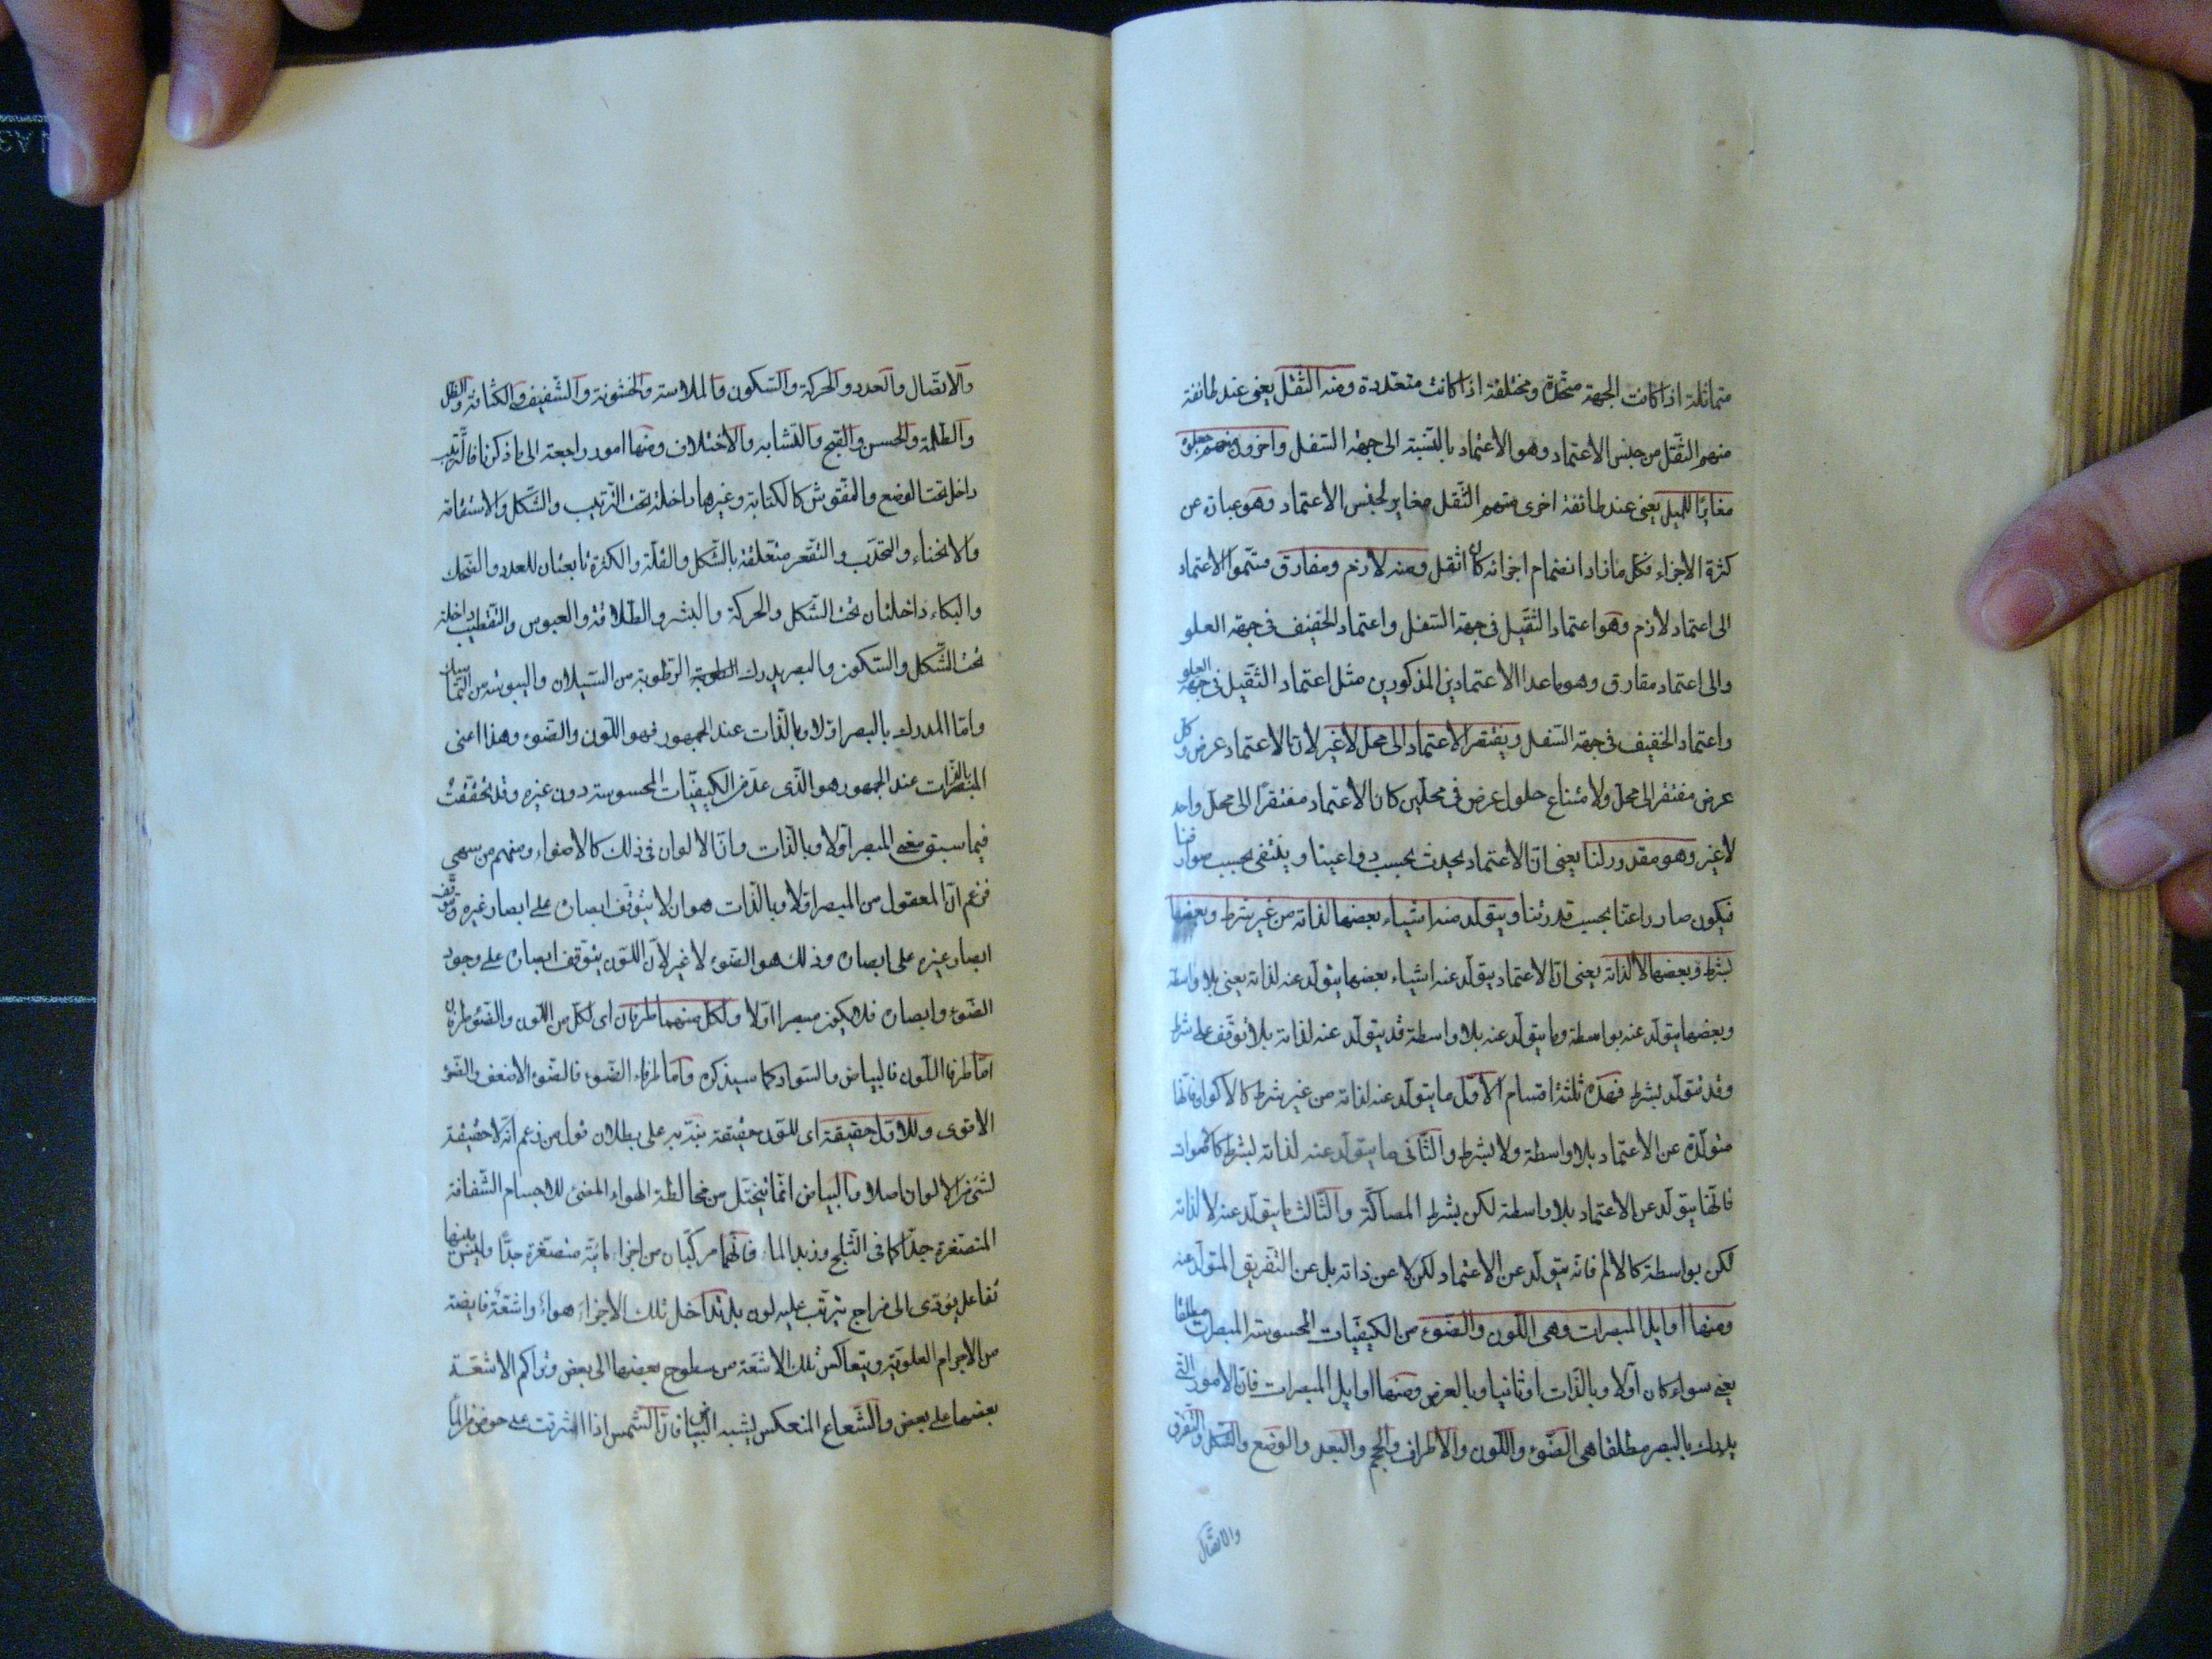 متماثلة اذا كانت الجهة متحدة ومختلفة اذا كانت متعددة ومنه الثقل يعنى عند طائفة
منهم الثقل من جنس الاعتماد وهو الاعتماد بالنسبة الى جهة السفل واخرون منهم جعلوه
مغايرا للميل يعنى عند طائفة اخرى منهم الثقل مغاير لجنس الاعتماد وهو عبارة عن
كثرة الاجزاء فكل ما زاد انضمام اجزائه كان اثقل ومنه لازم ومفارق قسموا الاعتماد
الى اعتماد لازم وهو اعتماد الثقيل فى جهة السفل واعتماد الخفيف فى جهة العلو
والى اعتماد مفارق وهو ما عدا الاعتمادين المذكورين مثل اعتماد الثقيل فى جهة العلو
واعتماد الخفيف فى جهة السفل ويفتقر الاعتماد الى محل لا غير لان الاعتماد عرض وكل
عرض مفتقر الى محل ولامتناع حلول عرض فى محلين كان الاعتماد مفتقرا الى محل واحد
لا غير وهو مقدور لنا يعنى ان الاعتماد يحدث بحسب دواعينا وينتفى بحسب صوارفنا
فيكون صادرا عنا بحسب قدرتنا ويتولد منه اشياء بعضها لذاته من غير شرط وبعضها
بشرط وبعضها لا لذاته يعنى ان الاعتماد يتولد عنه اشياء بعضها يتولد عنه لذاته يعنى بلا واسطة
وبعضها يتولد عنه بواسطة وما يتولد عنه بلا واسطة قد يتولد عنه لذاته بلا توقف على شرط
وقد يتولد بشرط فهذه ثلثة اقسام الاول ما يتولد عنه لذاته من غير شرط كالاكوان فانها
متولدة عن الاعتماد بلا واسطة ولا بشرط والثانى ما يتولد عنه لذاته بشرط كالاصوات
فانها يتولد عن الاعتماد بلا واسطة لكن بشرط المصاكة والثالث ما يتولد عنه لا لذاته
لكن بواسطة كالالم فانه يتولد عن الاعتماد لكن لا عن ذاته بل عن التفريق المتولد عنه
ومنها اوايل المبصرات وهى اللون والضوء من الكيفيات المحسوسة المبصرات مطلقا
يعنى سواء كان اولا وبالذات او ثانيا وبالعرض ومنها اوايل المبصرات فان الامور التى
يدرك بالبصر مطلقا هى الضوء واللون والاطراف والحجم والبعد والوضع والشكل والتفرق
والاتصال
والاتصال والعدد والحركة والسكون والملاسة والخشونة والشفيف والكثافة والظل
والظلمة والحسن والقبح والتشابه والاختلاف ومنها امور راجعة الى ما ذكرنا فالترتيب
داخل تحت الوضع والنقوش كالكتابة وغيرها داخلة تحت الترتيب والشكل والاستقامة
والانحناء والتحدب والتقعر متعلقة بالشكل والقلة والكثرة تابعتان للعدد والضحك
والبكاء داخلتان تحت الشكل والحركة والبشر والطلاقة والعبوس والتقطيب داخلة
تحت الشكل والسكون والبصر يدرك الرطوبة من السيلان واليبوسة من التماسك
واما المدرك بالبصر اولا وبالذات عند الجمهور فهو اللون والضوء وهذا اعنى
المبصر بالذات عند الجمهور هو الذى عد من الكيفيات المحسوسة دون غيره وقد تحققت
فيما سبق معنى المبصر اولا وبالذات وان الالوان فى ذلك كالاضواء ومنهم من سهى
فزعم ان المعقول من المبصر اولا وبالذات هو ان لا يتوقف ابصاره على ابصار غيره وتوقف
ابصار غيره على ابصاره وذلك هو الضوء لا غير لان اللون يتوقف ابصاره على وجود
الضوء وابصاره فلا يكون مبصرا اولا ولكل منهما طرفان اى لكل من اللون والضوء طرفان
اما طرفا اللون فالبياض والسواد كما سيذكره واما طرفاء الضوء فالضوء الاضعف والضوء
الاقوى وللاول حقيقة اى للون حقيقة ينبه به على بطلان قول من زعم انه لا حقيقة
لشئ من الالوان اصلا والبياض انما يتخيل من مخالطة الهواء المضئ للاجسام الشفافة
المتصغرة جدا كما فى الثلج وزبد الماء فانهما مركبان من اجزاء مائية متصغرة جدا وليس بينها
تفاعل يؤدى الى مزاج يترتب عليه لون بل تداخل تلك الاجزاء هواء واشعة فايضة
من الاجرام العلوية ويتعاكس تلك الاشعة من سطوح بعضها الى بعض وتراكم الاشعة
بعضها على بعض والشعاع المنعكس يشبه البياض فان الشمس اذا اشرقت على حوض من الماء